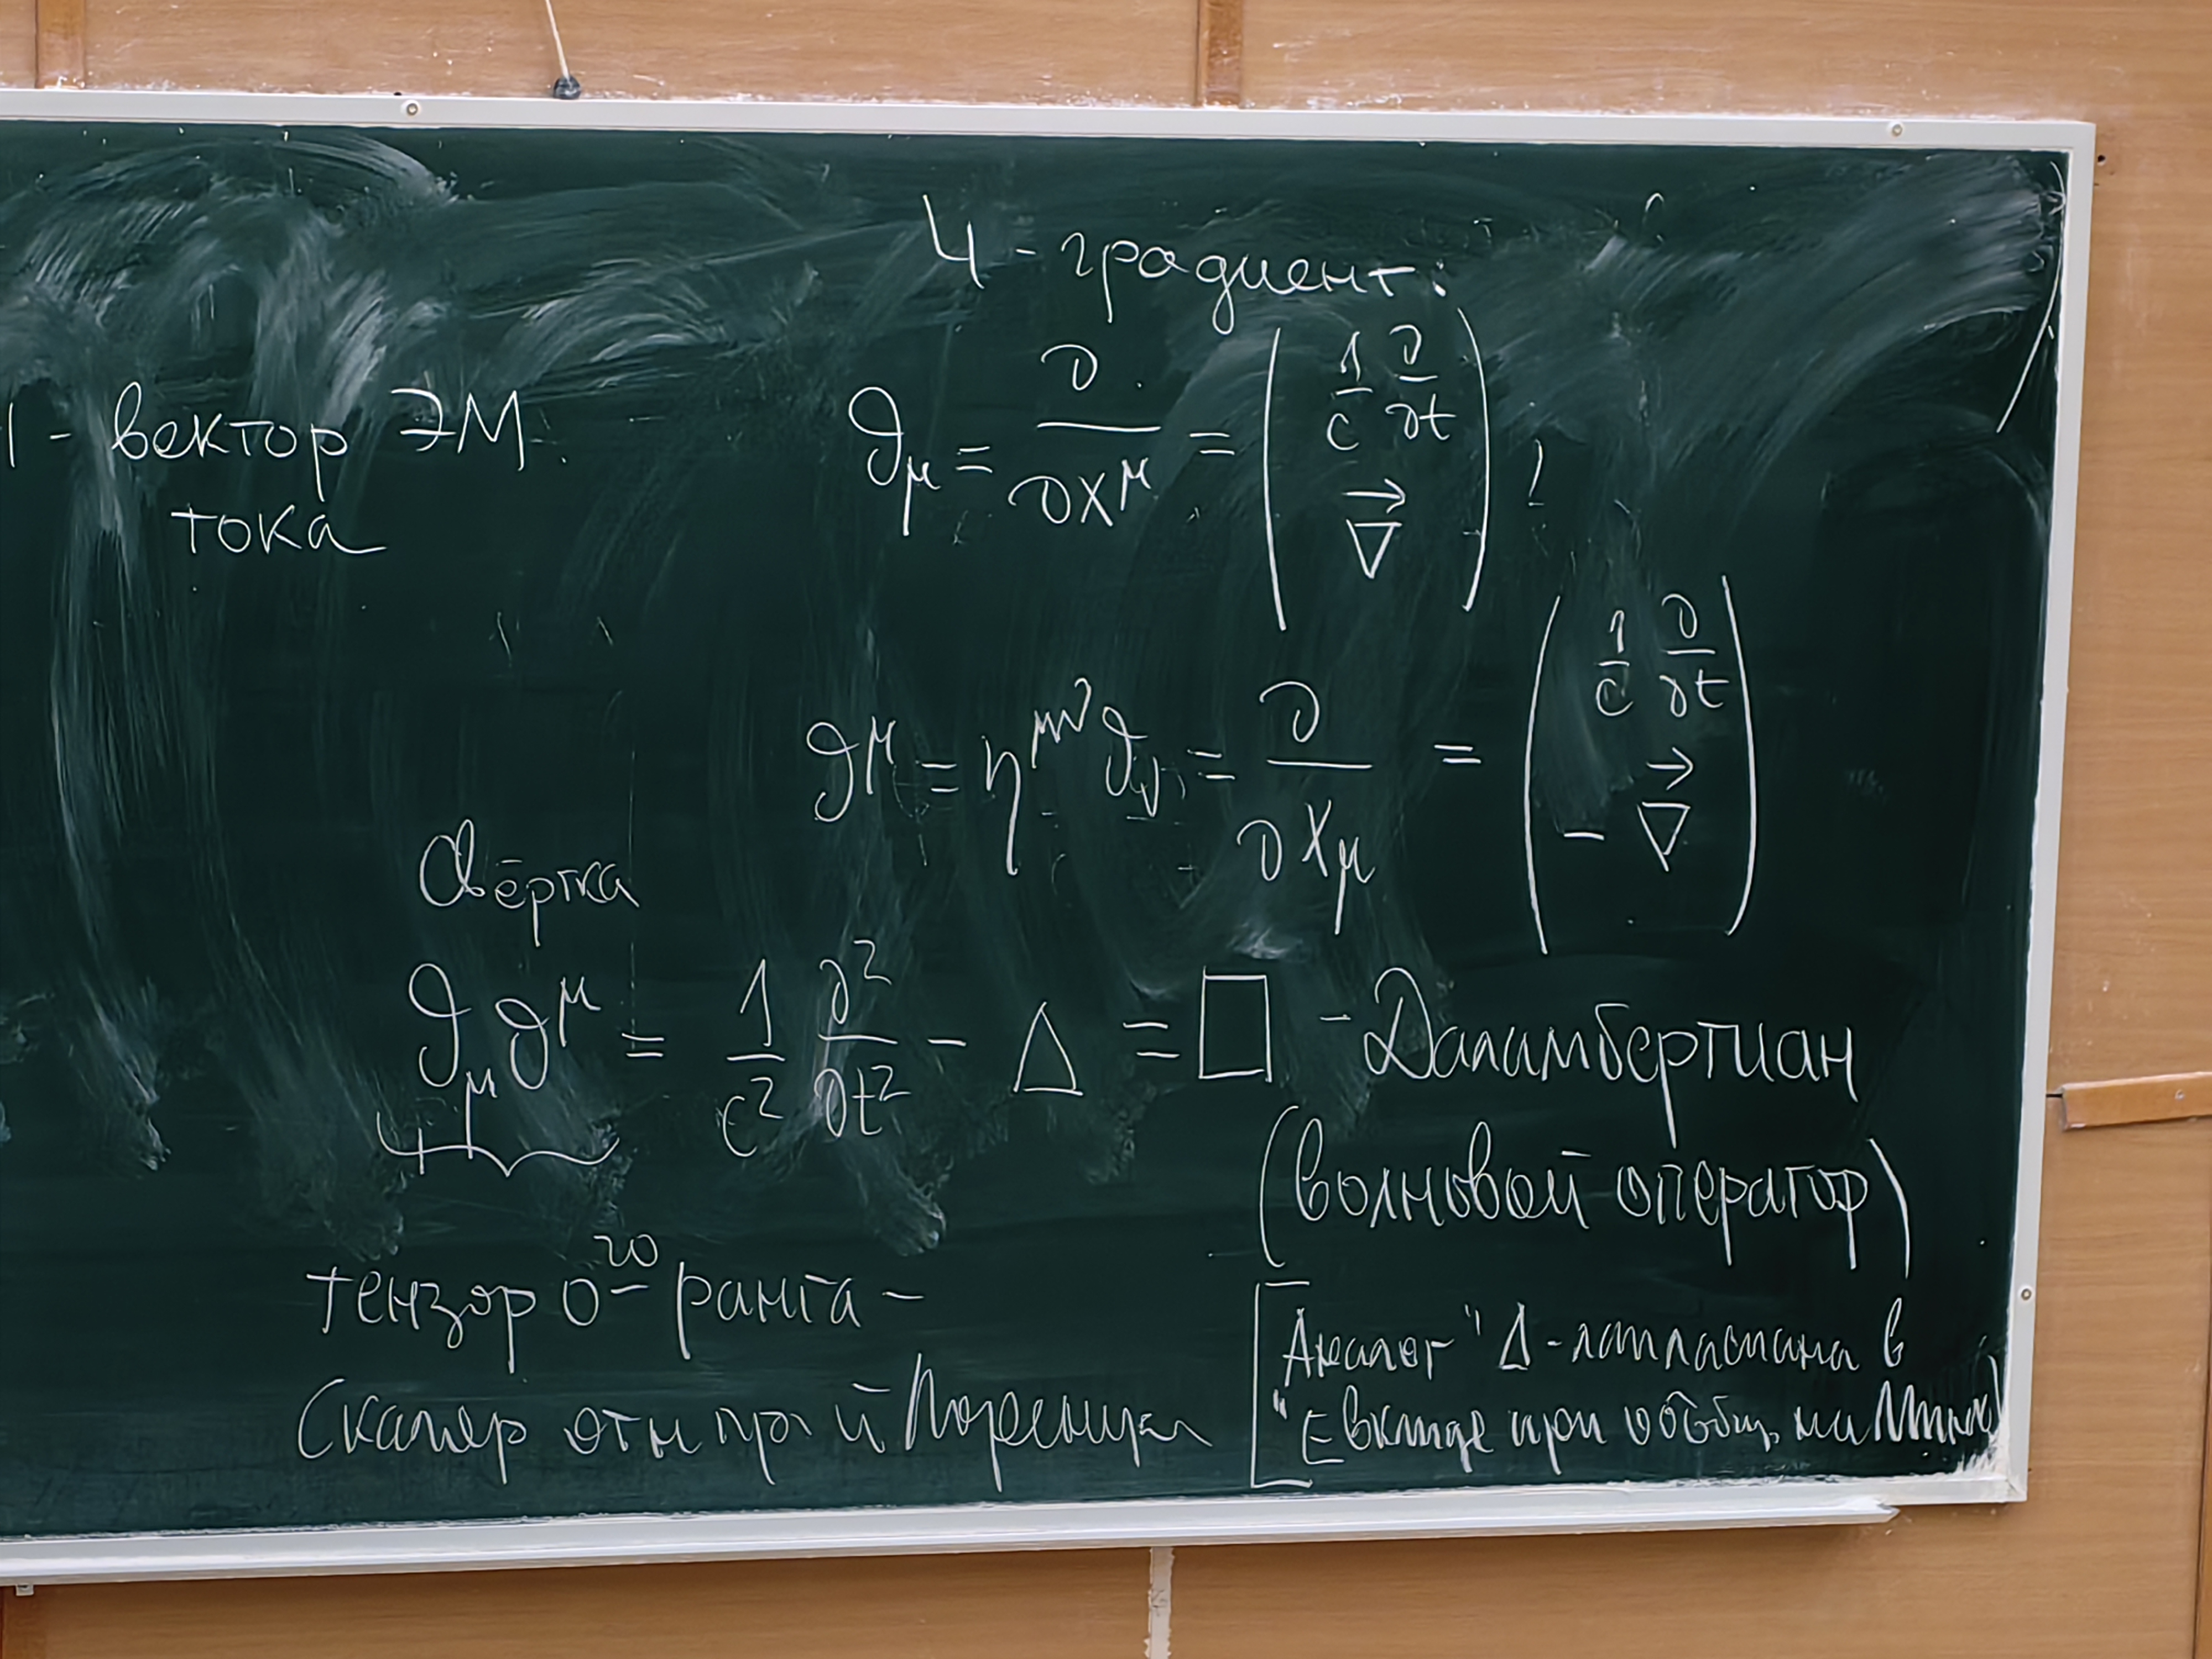 4-градиент:
∂_μ = ∂/∂x^μ = (1/c ∂/∂t, ∇⃗) !
- вектор ЭМ
тока
∂^μ = η^{μν} ∂_ν = ∂/∂x_μ = (1/c ∂/∂t, -∇⃗)
Свёртка
∂_μ ∂^μ = 1/c² ∂²/∂t² - Δ = □ - Даламбертиан
(волновой оператор)
тензор 0го ранга -
Скаляр отн пр й Лоренца
[Аналог "Δ-лапласиана в
"Евклиде при обобщ. на Минк